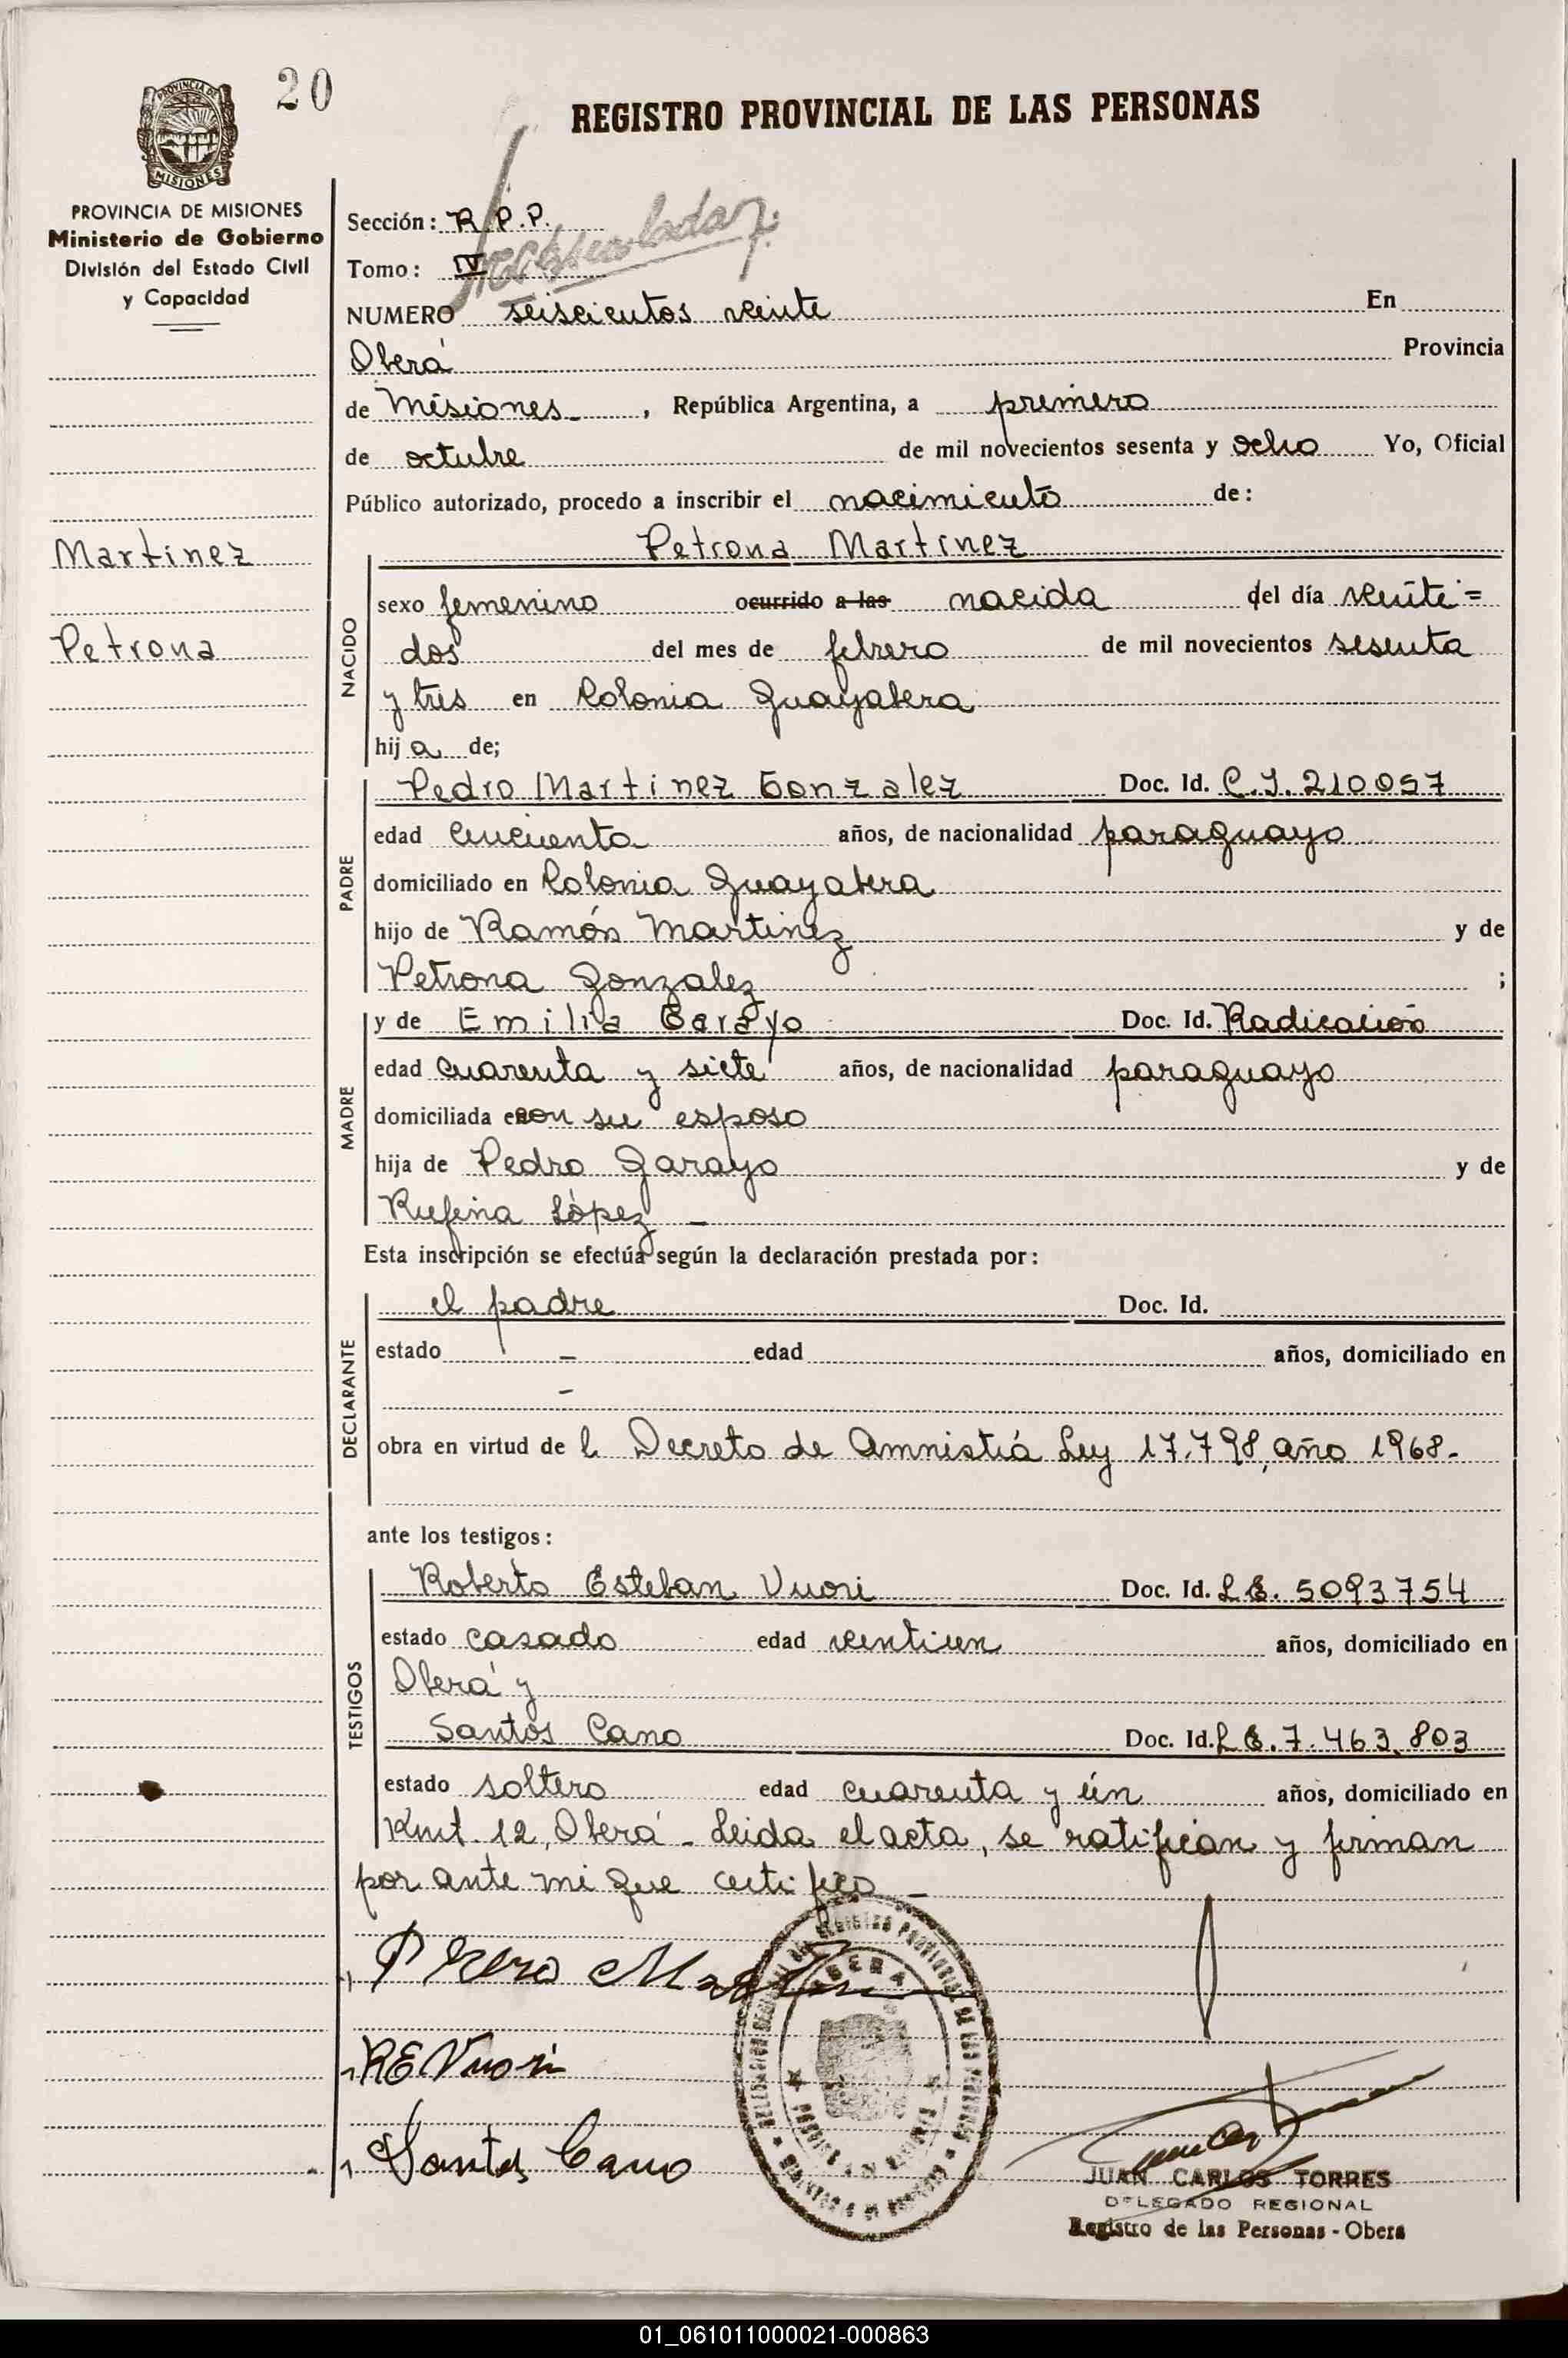 20
REGISTRO PROVINCIAL DE LAS PERSONAS
PROVINCIA DE
MISIONES
PROVINCIA DE MISIONES
Ministerio de Gobierno
División del Estado Civil
y Capacidad
Sección: R.P.P.
Tomo: IV
NUMERO seiscientos veinte En
Oberá Provincia
de Misiones , República Argentina, a primero
de octubre de mil novecientos sesenta y ocho Yo, Oficial
Público autorizado, procedo a inscribir el nacimiento de:
Martinez
Petrona
NACIDO
Petrona Martinez
sexo femenino ocurrido a las nacida del día veinti=
dos del mes de febrero de mil novecientos sesenta
y tres en Colonia Guayabera
hij a de;
PADRE
Pedro Martinez Gonzalez Doc. Id. C.I. 210057
edad cincuenta años, de nacionalidad paraguayo
domiciliado en Colonia Guayabera
hijo de Ramón Martinez y de
Petrona Gonzalez ;
MADRE
y de Emilia Garayo Doc. Id. Radicación
edad cuarenta y siete años, de nacionalidad paraguayo
domiciliada con su esposo
hija de Pedro Garayo y de
Rufina López –
Esta inscripción se efectúa según la declaración prestada por:
DECLARANTE
el padre Doc. Id.
estado – edad años, domiciliado en
–
obra en virtud de l Decreto de Amnistiá Ley 17.798, año 1968-
ante los testigos:
TESTIGOS
Roberto Esteban Vuori Doc. Id. L.E. 5093754
estado casado edad ventiun años, domiciliado en
Oberá y
Santos Cano Doc. Id. L.E. 7.463.803
estado soltero edad cuarenta y ún años, domiciliado en
Kmt. 12, Oberá - Leida el acta, se ratifican y firman
por ante mi que certifico –
Pedro Martinez
RE Vuori
Santos Cano
OBERA
JUAN CARLOS TORRES
DELEGADO REGIONAL
Registro de las Personas - Obera
01_061011000021-000863